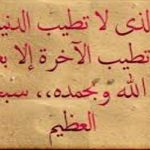 لذى لا تطيب الدني
تطيب الآخرة إلا بع
الله وبحمده،، سبح
العظيم